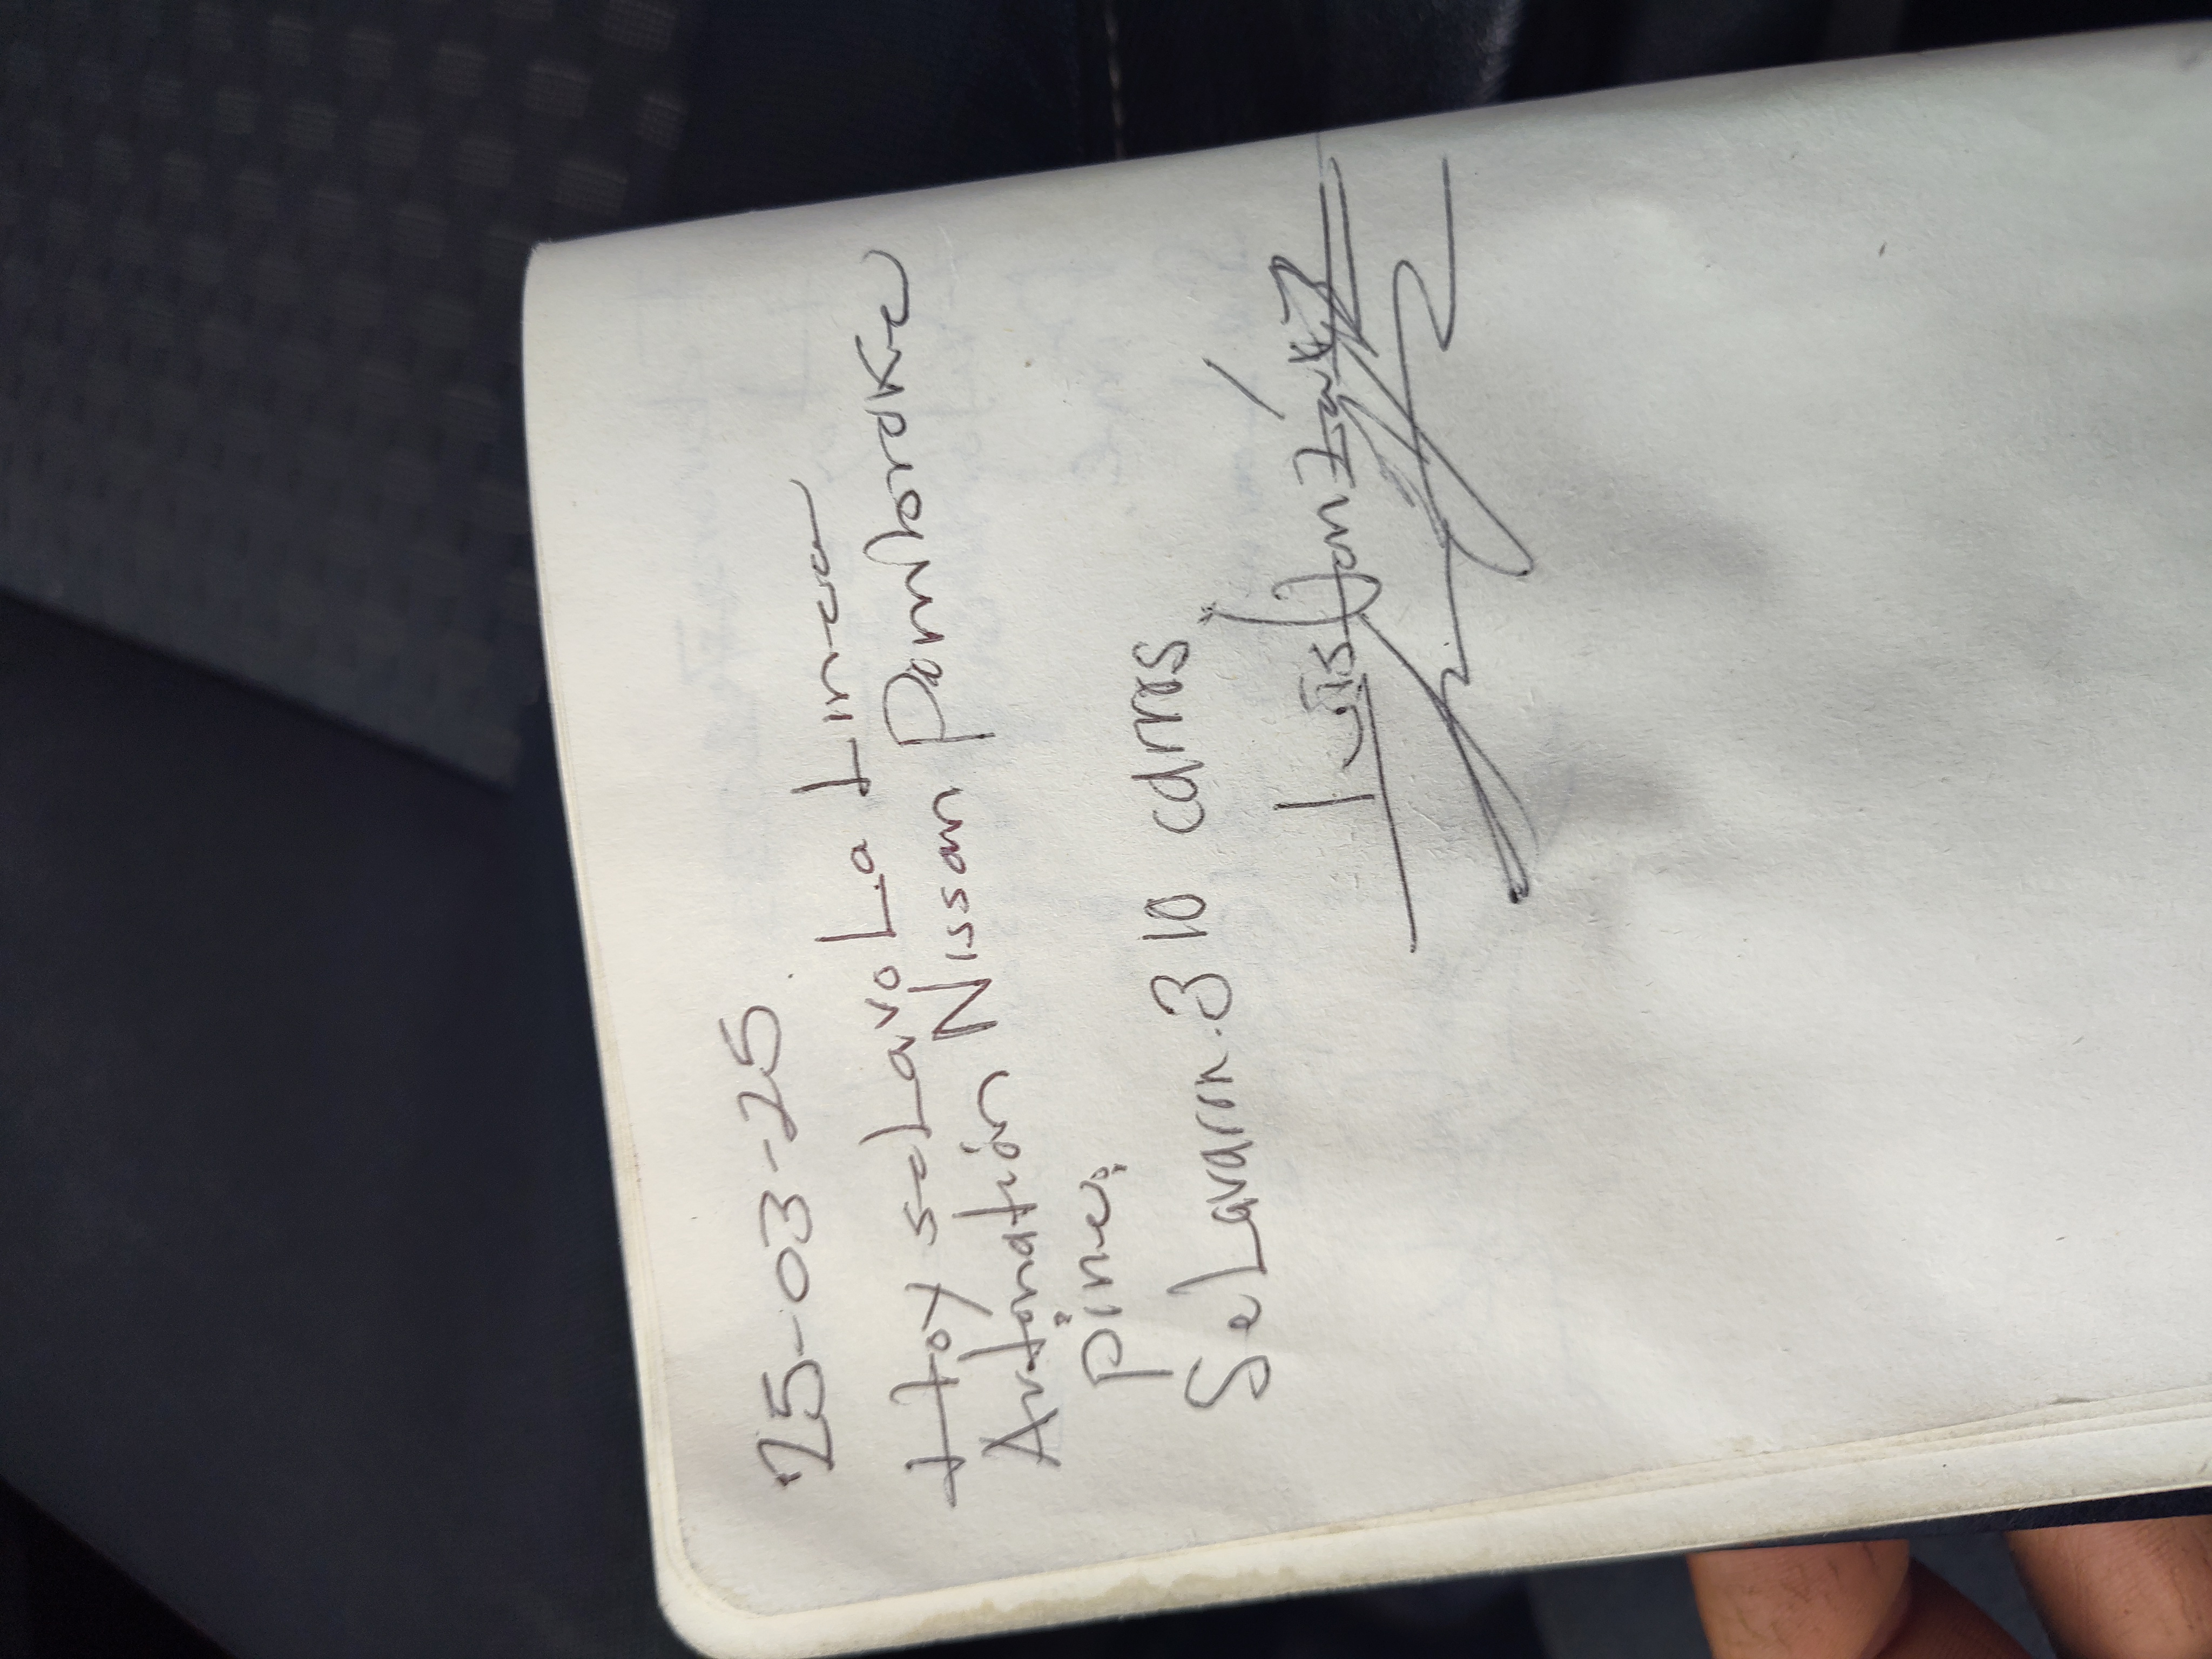 25-03-25
Hoy se Lavo La Linea
Autonation Nissan Pembroke
Pine:
Se Lavaron 310 carros
Luis